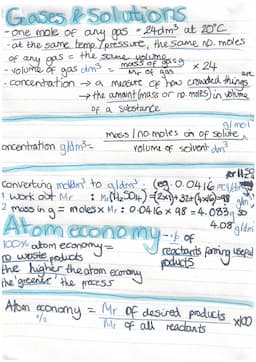 Gases & Solutions
- one mole of any gas = 24dm³ at 20°C
- at the same temp./pressure, the same no. moles
of any gas = the same volume
- volume of gas dm³ = mass of gas g / Mr of gas × 24
- concentration → a measure of how crowded things are
→ the amount (mass or no. moles) in volume
of a substance
g/mol
oncentration g/dm³ = mass/no. moles on of solute / volume of solvent dm³
converting mol/dm³ to g/dm³ : (eg. 0.0416
1 work out Mr : Mr(H₂SO₄) = (2×1)+32+(4×16)=98
2 mass in g = moles × Mr : 0.0416 × 98 = 4.083g so
4.08g/dm³
Atom economy - % of
reactants forming useful
products
100% atom economy =
no waste products
the higher the atom economy
the 'greener' the process
Atom economy % = Mr of desired products / Mr of all reactants ×100